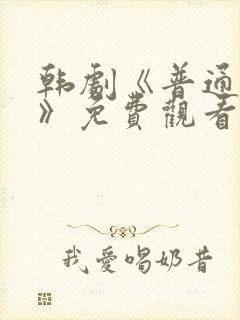 韩劇《普通
》免費觀看
我愛喝奶昔